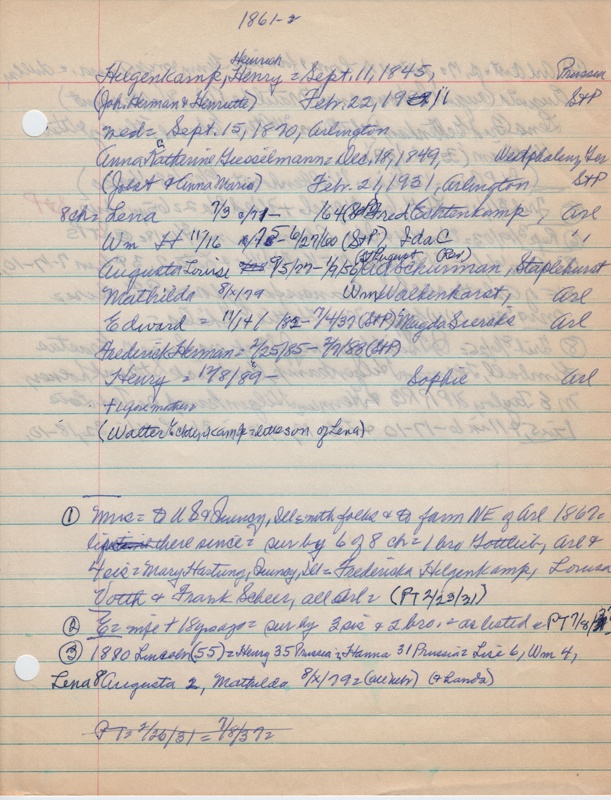 1861-2
Heinrich
Hilgenkamp, Henry = Sept. 11, 1845, Prussia
(Joh. Herman & Henriette) Feb. 22, 1911 StP
wed = Sept. 15, 1870, Arlington
Anna Katharine Giesselmann = Dec. 18, 1849, Westphalen, Ger
(Jobst & Anna Maria) Feb. 21, 1931, Arlington StP
8 ch = Lena 7/3 /71 - Fred Echtenkamp, Arl
Wm H 11/16 /75 - 6/27/60 (StP) Ida C "
(StP August Red)
Augusta Louise 9/5/77 - Schurman, Staplehurst
Mathilda 8/x/79 Wm Walkenhorst, Arl
Edward = 11/14/ 82 - 7/4/37 (StP) Magda Sierks Arl
Frederick Herman = 2/25/85 - 2/9/88 (StP)
Henry = 12/8/89 - Sophie Arl
(Walter Echtenkamp = son of Lena)
① Mrs = to US & Quincy, Ill = with folks & to farm NE of Arl 1867 =
there since = sur by 6 of 8 ch = 1 bro Gottlieb, Arl &
4 sis = Mary Hastung, Quincy, Ill = Fredericka Hilgenkamp, Louisa
Voeth & Frank Scheer, all Arl = (PT 2/23/31)
② E = wife + 18 yrs ago = sur by 3 sis & 2 bro. = as listed = PT 7/8/
③ 1880 Lincoln (55) = Henry 35 Prussia = Hanna 31 Prussia = Lise 6, Wm 4,
Lena 8 Augusta 2, Mathilda 8/x/79 = (all Nebr) (& Landa)
PT = 2/26/31 = 7/8/37 =